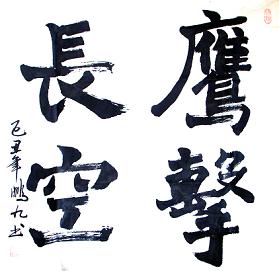 鷹擊
長空
己丑年鵬九书